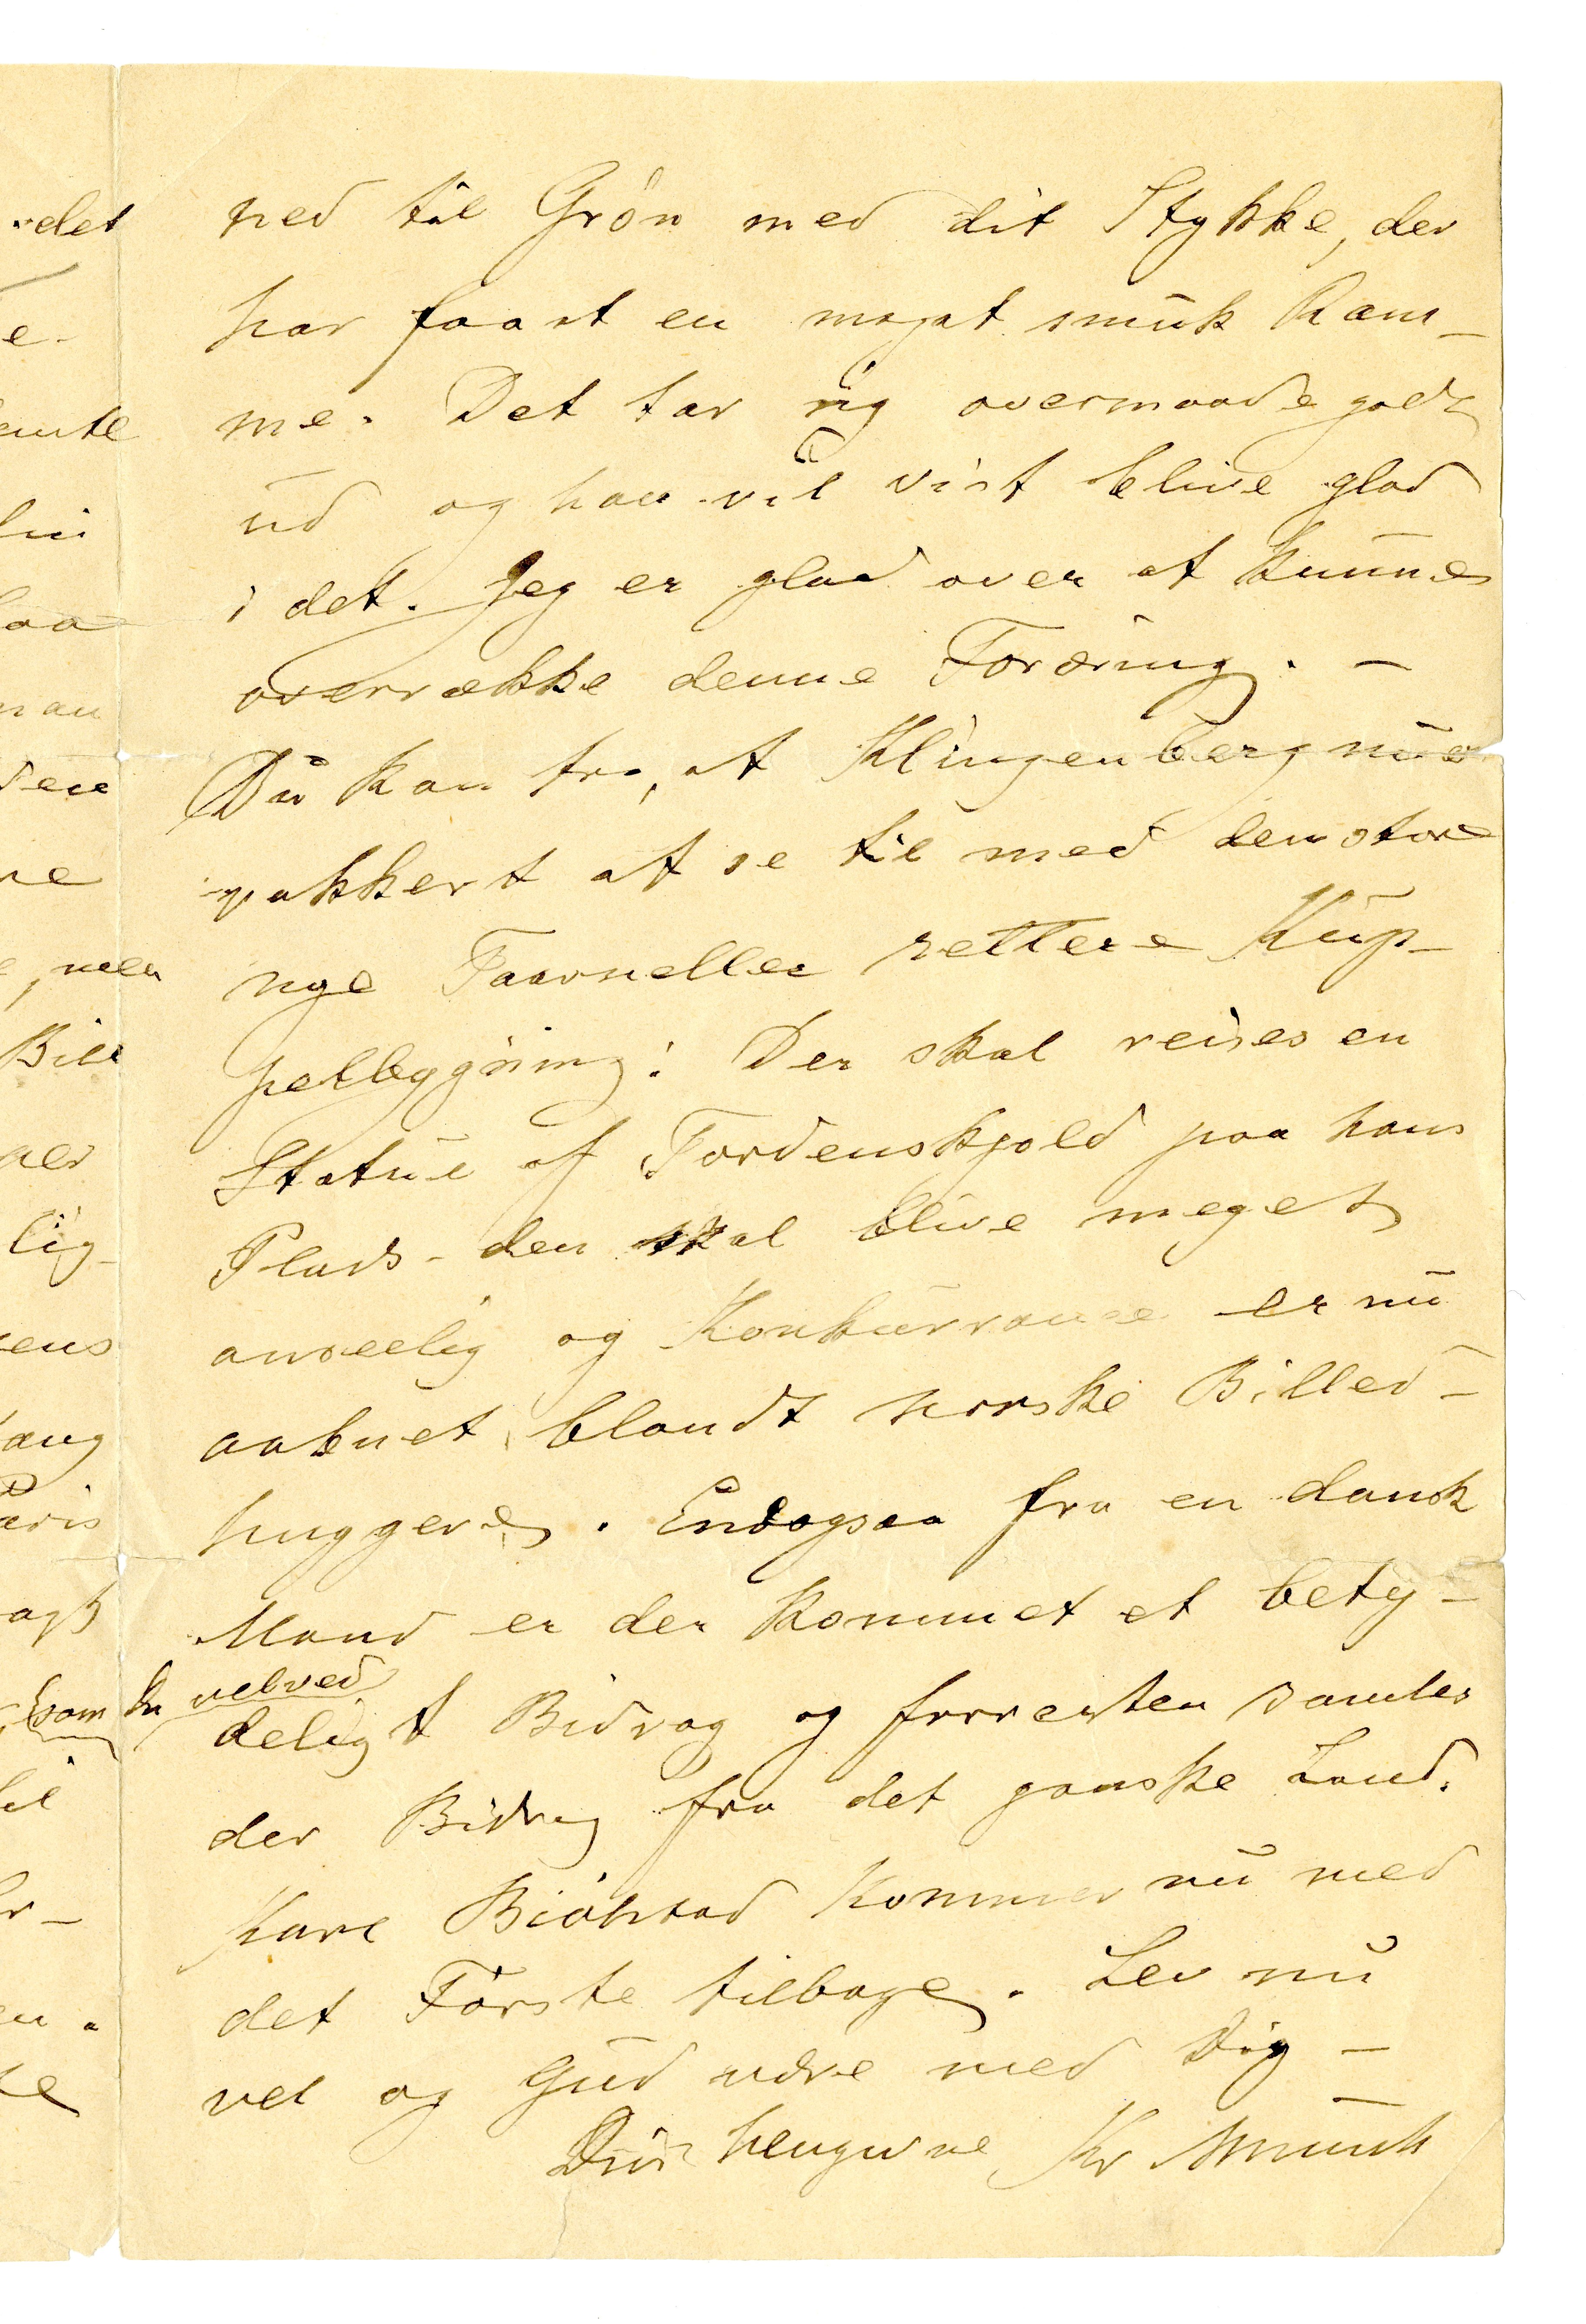 ned til Grøn med dit Stykke, der
har faaet en meget smuk Ram-
me. Det tar sig overmaade godt
ud og han vil vist blive glad
i det. Jeg er glad over at kunne
overrække denne Foræring. –
Du kan tro, at Klingenberg nu er
vakkert at se til med den store
nye Taarn eller rettere Kup-
pelbygning! Der skal reises en
Statue af Tordenskjold paa hans
Plads – den skal blive meget
anseelig og Konkurrance er nu
aabnet blandt norske Billed-
huggere. Endogsaa fra en dansk
Mand er der kommet et bety-
som Du vel ved
deligt Bidrag og forresten samles
der Bidrag fra det ganske Land.
Karl Bjølstad kommer nu med
det Første tilbage. Lev nu
vel og Gud være med Dig –
Din hengivne Kr Munch
det
e-
paa
den
ne
, men
Bill
lig-
ens
ang
Paris
til
en.